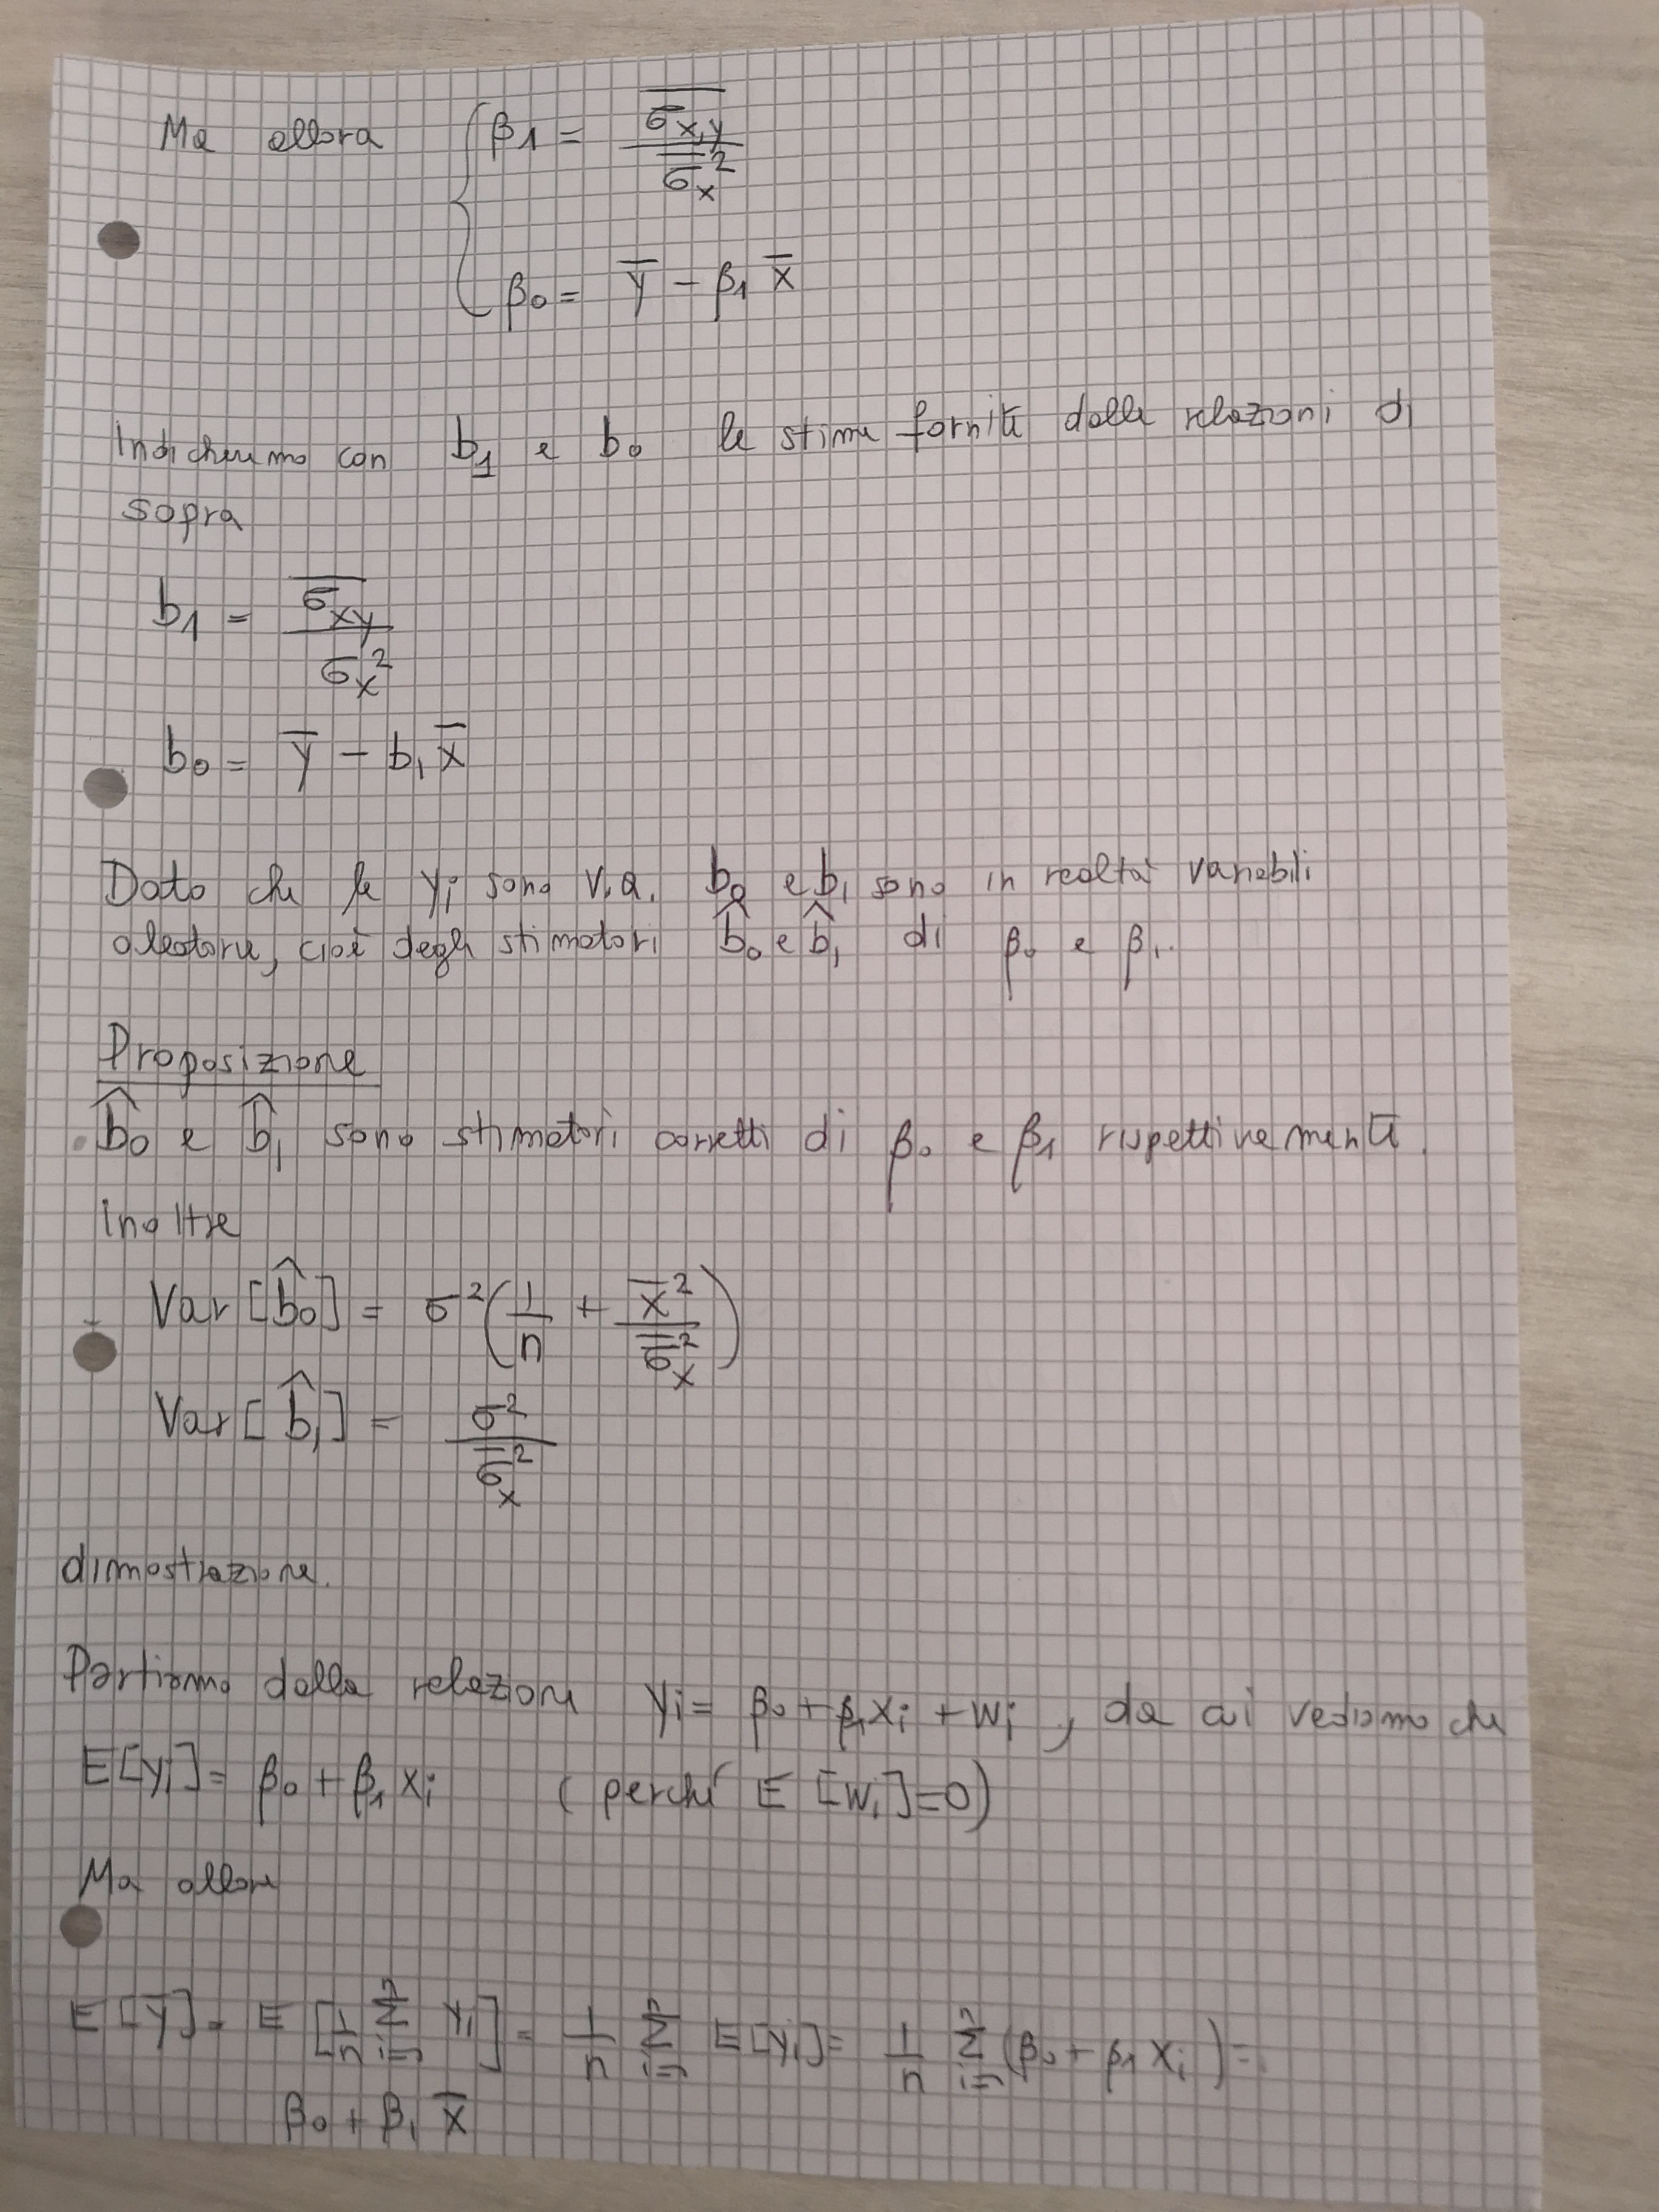 Ma allora { β1 = σ̅x,y / σ̅x²
β0 = y̅ - β1 x̅
Indicheremo con b1 e b0 le stime fornite dalle relazioni di
sopra
b1 = σ̅xy / σx²
b0 = y̅ - b1 x̅
Dato che le yi sono v.a. b0 e b1 sono in realtà variabili
aleatorie, cioè degli stimatori b̂0 e b̂1 di β0 e β1.
Proposizione
b̂0 e b̂1 sono stimatori corretti di β0 e β1 rispettivamente.
inoltre
Var[b̂0] = σ² (1/n + x̅² / σ̅x²)
Var[b̂1] = σ² / σ̅x²
dimostrazione.
Partiamo dalla relazione yi = β0 + β1 xi + wi, da cui vediamo che
E[yi] = β0 + β1 xi (perché E[wi]=0)
Ma allora
E[y̅] = E[1/n Σ yi] = 1/n Σ E[yi] = 1/n Σ (β0 + β1 xi) =
β0 + β1 x̅